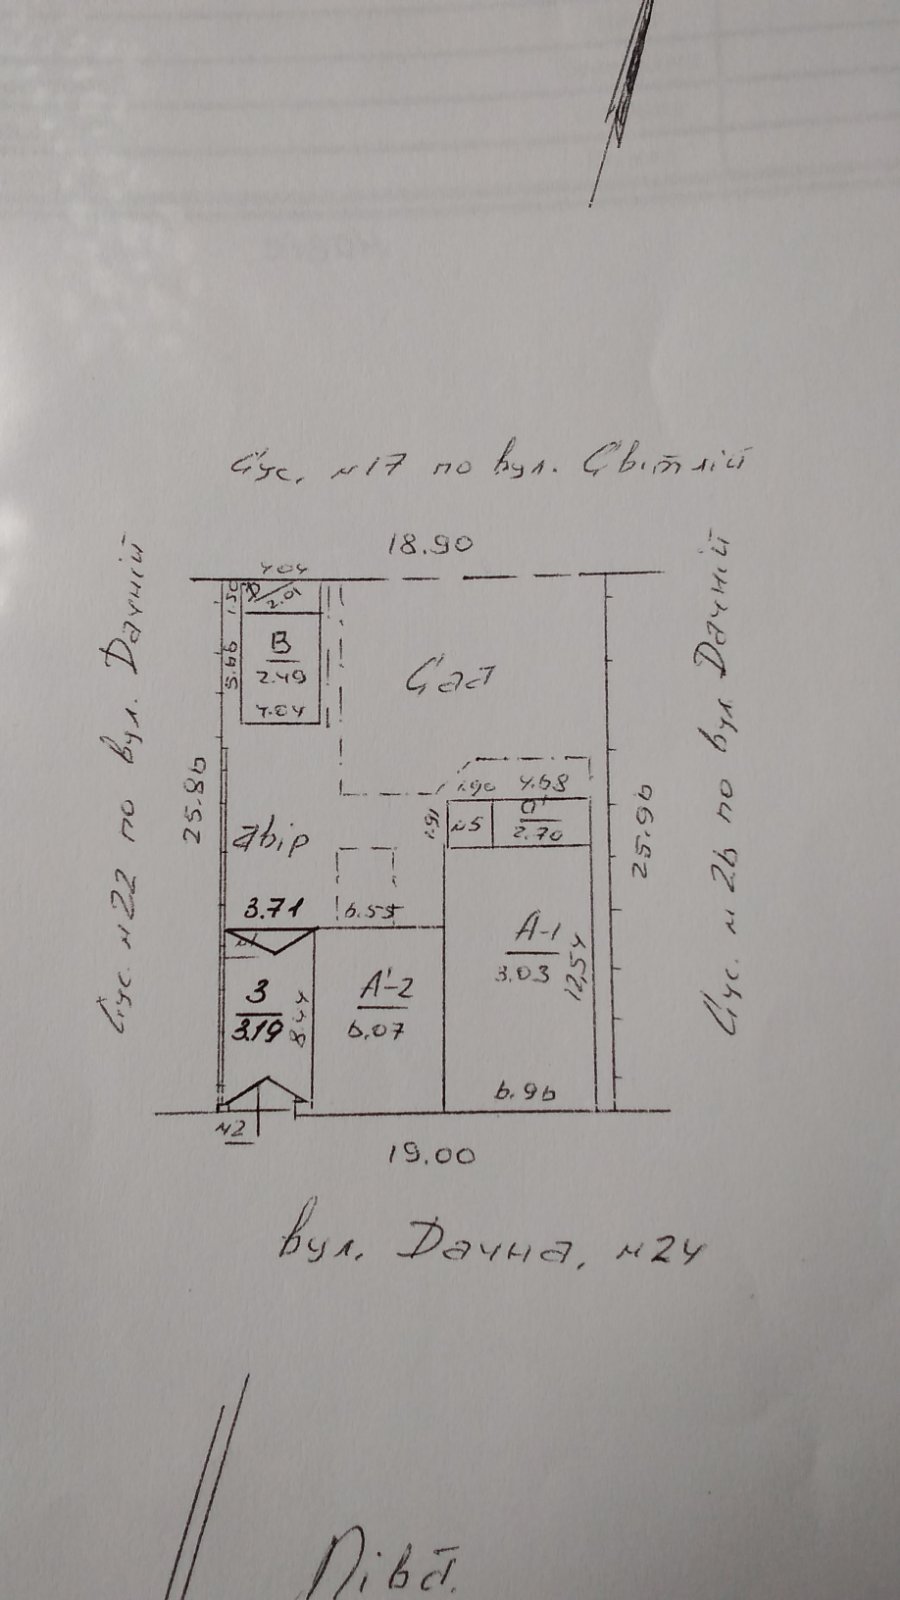 Сус. №17 по вул. Світлій
18.90
Сус. №22 по вул. Дачній
25.86
Сус. №26 по вул. Дачній
25.96
4.04
1.50
2.01
В
2.49
5.66
4.04
Сад
1.90 4.68
1.91
№5
2.70
Двір
3.71 6.55
№1
З
3.19
8.44
А'-2
6.07
А-1
3.03
12,54
6.96
№2
19.00
вул. Дачна, №24
Півд.